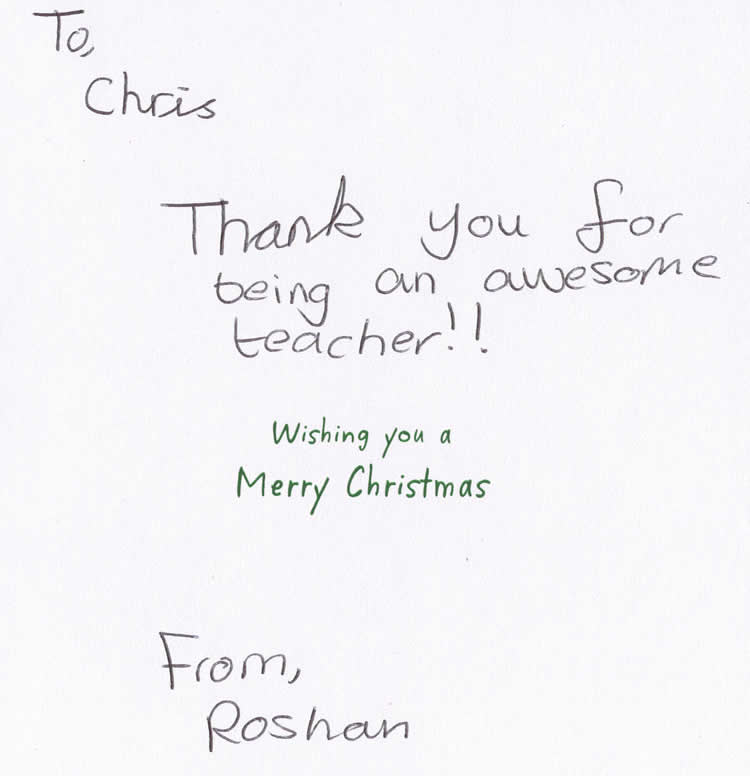 To,
Chris
Thank you for
being an awesome
teacher!!
Wishing you a
Merry Christmas
From,
Roshan